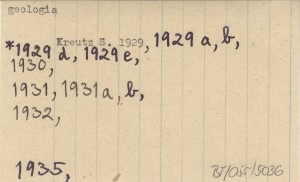 geologia
Kreutz S. 1929, 1929 a, b,
*1929 d, 1929 e,
1930,
1931, 1931 a, b,
1932,
1935,
BJ/OSS/5036